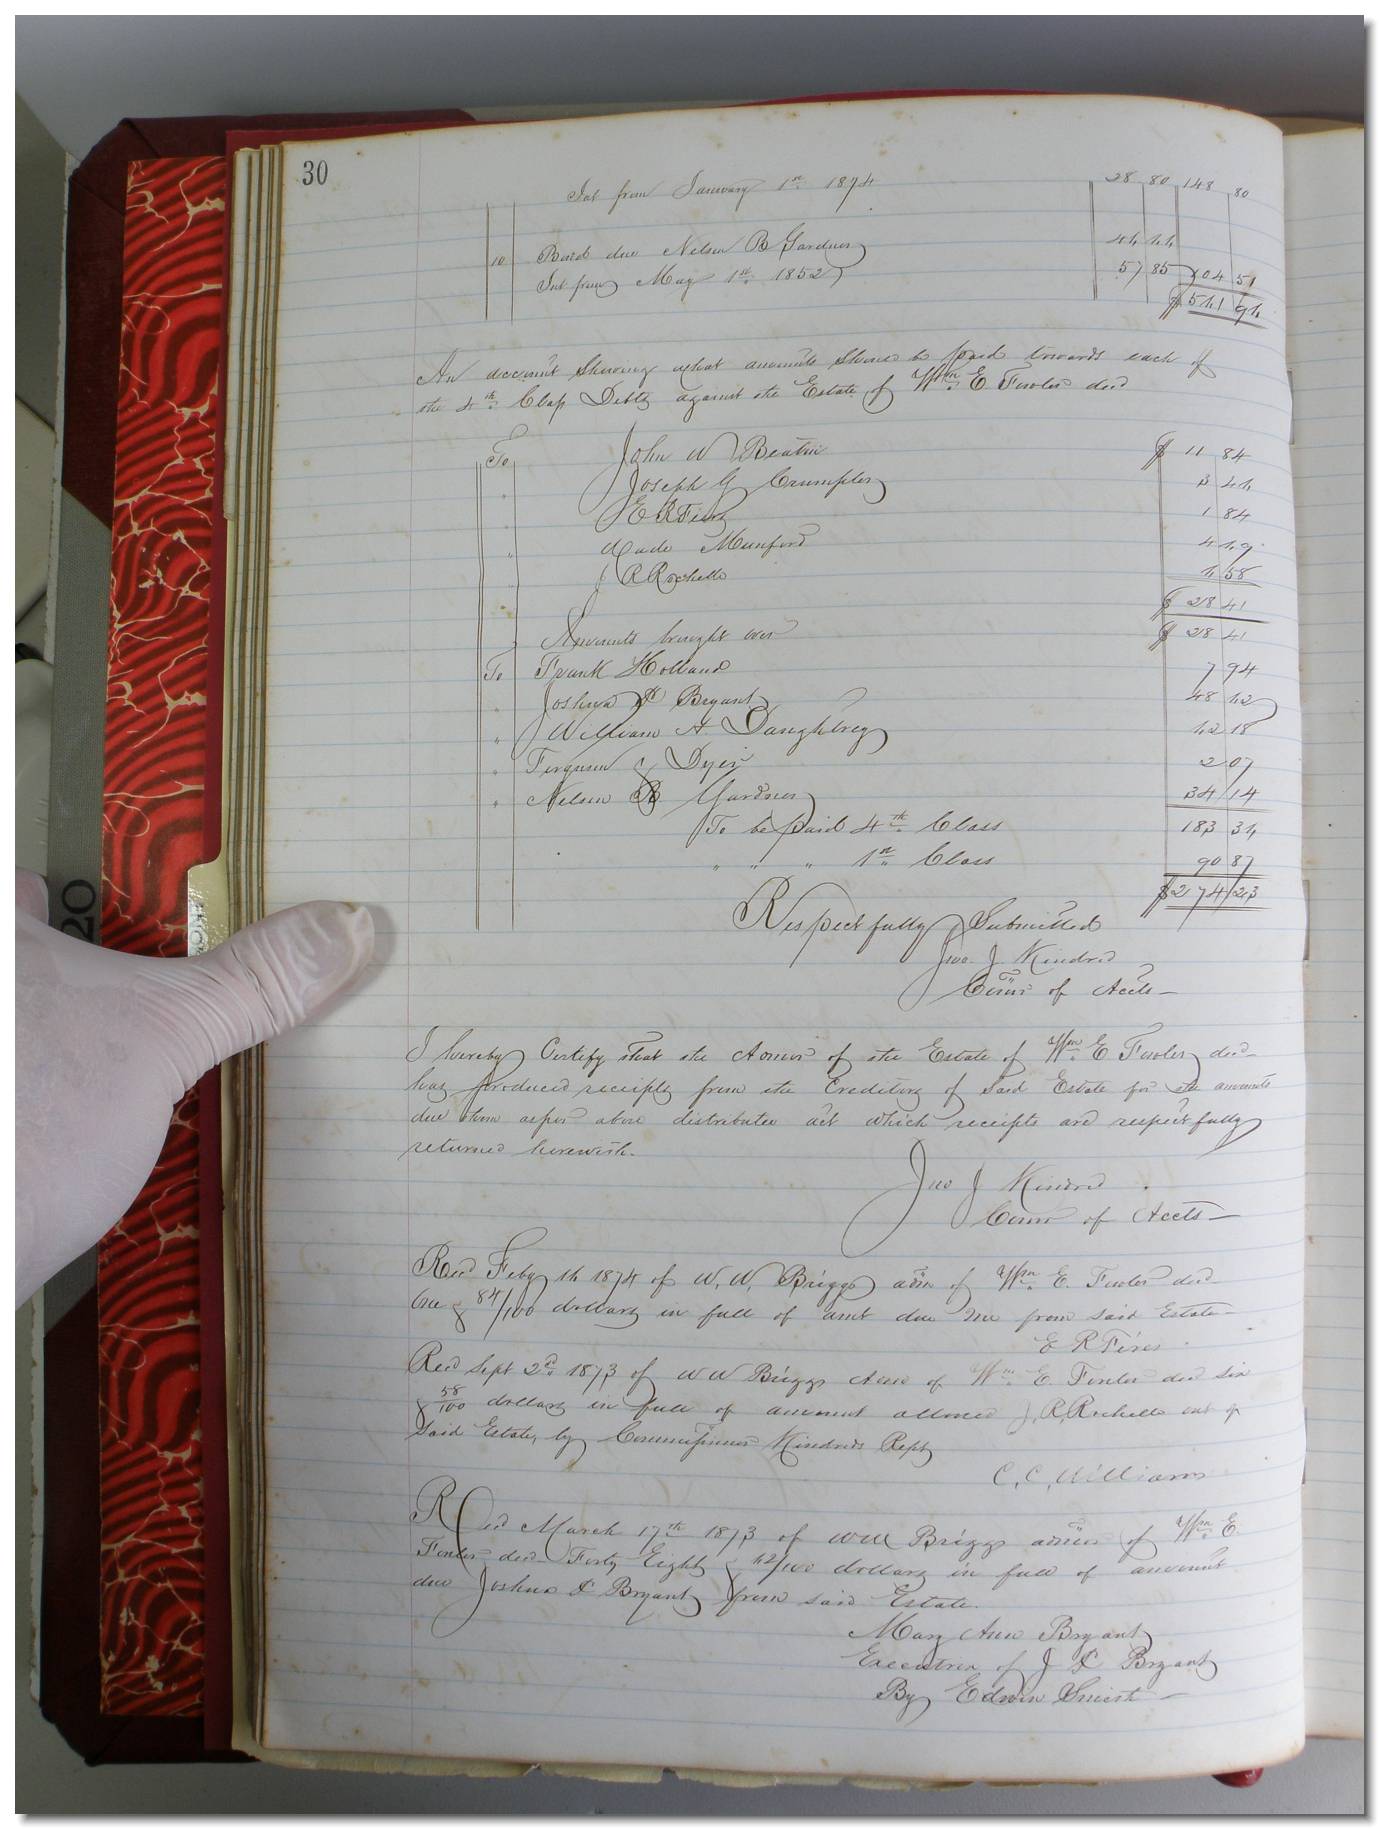 30
Int from January 1st 1874 28 80 148 80
10 Bond due Nelson B Gardner 46 66
Int from May 1st 1852 57 85 104 51
$561 96
An account Shewing what amounts Should be paid towards each of
the 4th Class Debts against the Estate of Wm E Fowler decd
To John W Beaton $ 11 84
" Joseph G Crumpler 3 46
" E R Fiers 1 84
" Wade Munford 4 69
" J R Rochelle 6 58
$ 28 41
Amounts brought over $ 28 41
To Frank Holland 7 94
" Joshua P Bryant 48 62
" William A Daughtrey 62 18
" Ferguson & Dyer 2 07
" Nelson B Gardner 34 14
To be paid 4th Class 183 36
" " " 1st Class 90 87
$274 23
Respectfully Submitted
Jno. J. Kindred
Comr of Accts
I hereby Certify that the Admr of the Estate of Wm E Fowler decd
has produced receipts from the Creditors of Said Estate for the amounts
due them as per above distributed act which receipts are respectfully
returned herewith.
Jno J Kindred
Comr of Accts
Recd Feby 16 1874 of W. W. Briggs adm of Wm E. Fowler decd
One & 84/100 dollars in full of amt due me from said Estate
E R Fires
Recd Sept 2nd 1873 of W W Briggs Admr of Wm E. Fowler decd six
& 58/100 dollars in full of amount allowed J. R. Rochelle out of
Said Estate, by Commissioner Kindreds Rept
C. C. Williams
Recd March 17th 1873 of W W Briggs admr of Wm E
Fowler decd Forty Eight & 62/100 dollars in full of amount
due Joshua P Bryant from said Estate.
Mary Ann Bryant
Executrix of J P Bryant
By Edwin Smith